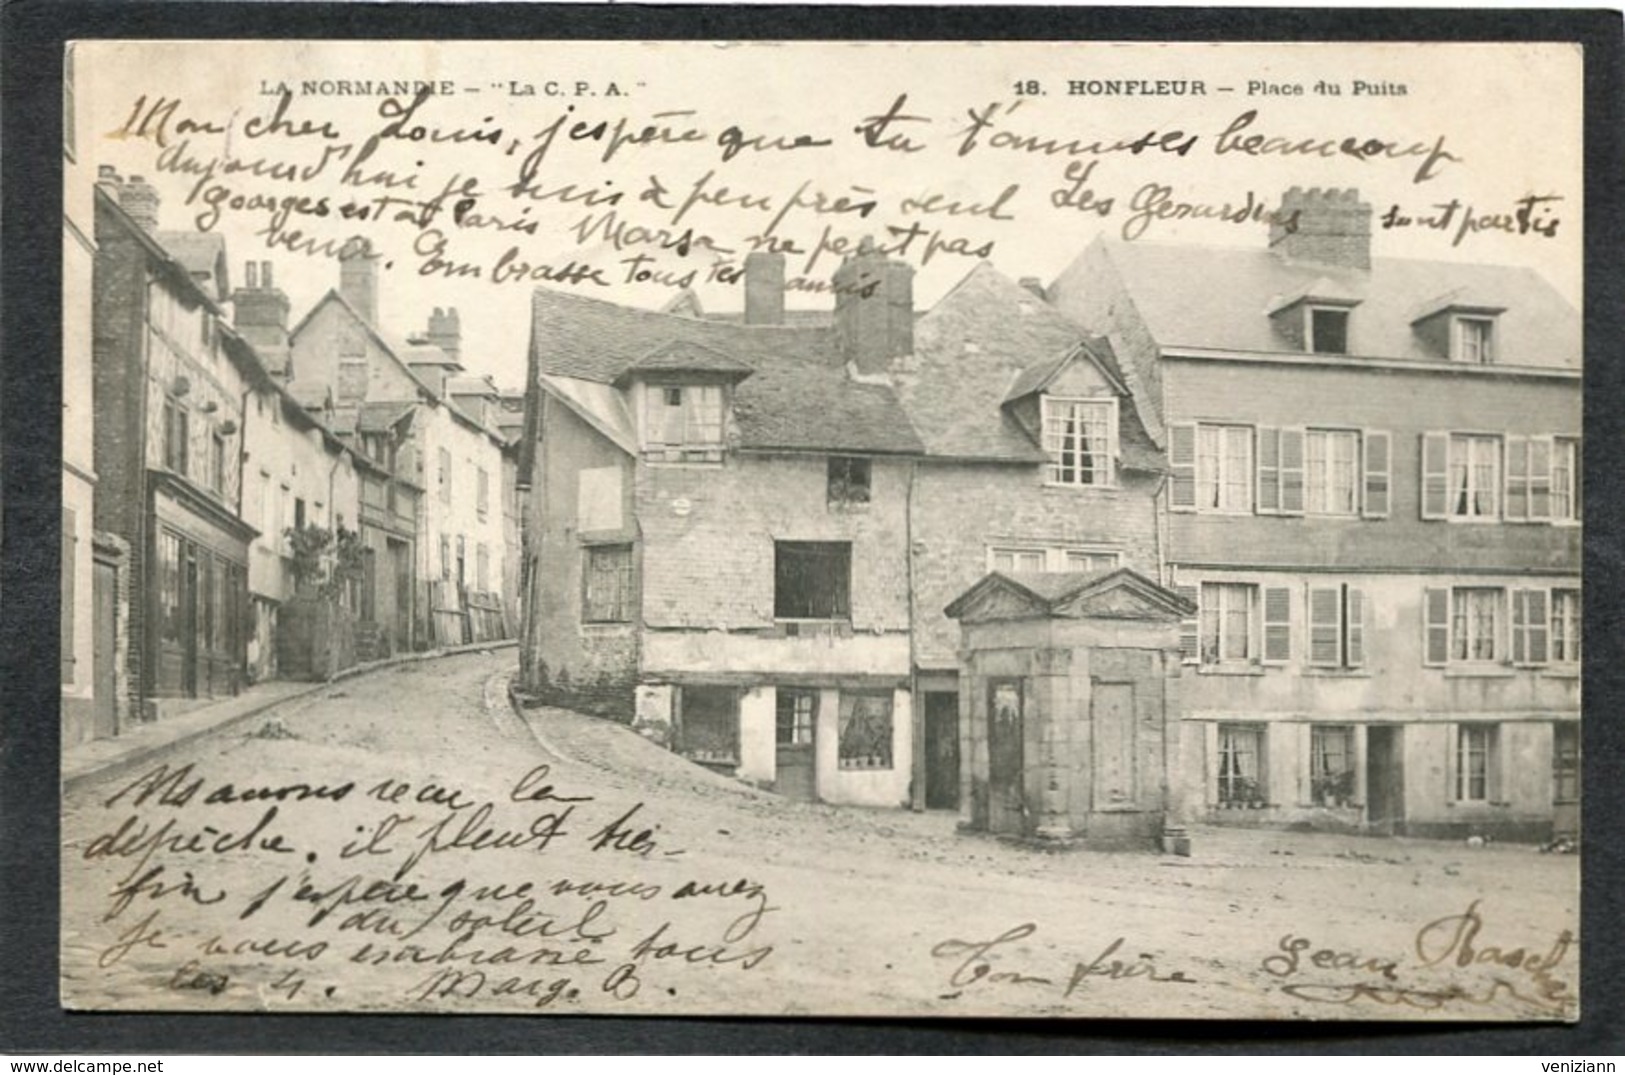 LA NORMANDIE – "La C. P. A."
18. HONFLEUR – Place du Puits
Mon cher Louis, j'espère que tu t'amuses beaucoup
aujourd'hui je suis à peu près seul Les Gérardins sont partis
Georges est à Paris Marsa ne peut pas
venir. Embrasse tous tes amis
Ns avons reçu la
dépêche. il pleut très
fin j'espère que vous avez
du soleil
je vous embrasse tous
les 4. Marg. B.
Ton frère Jean
veniziann